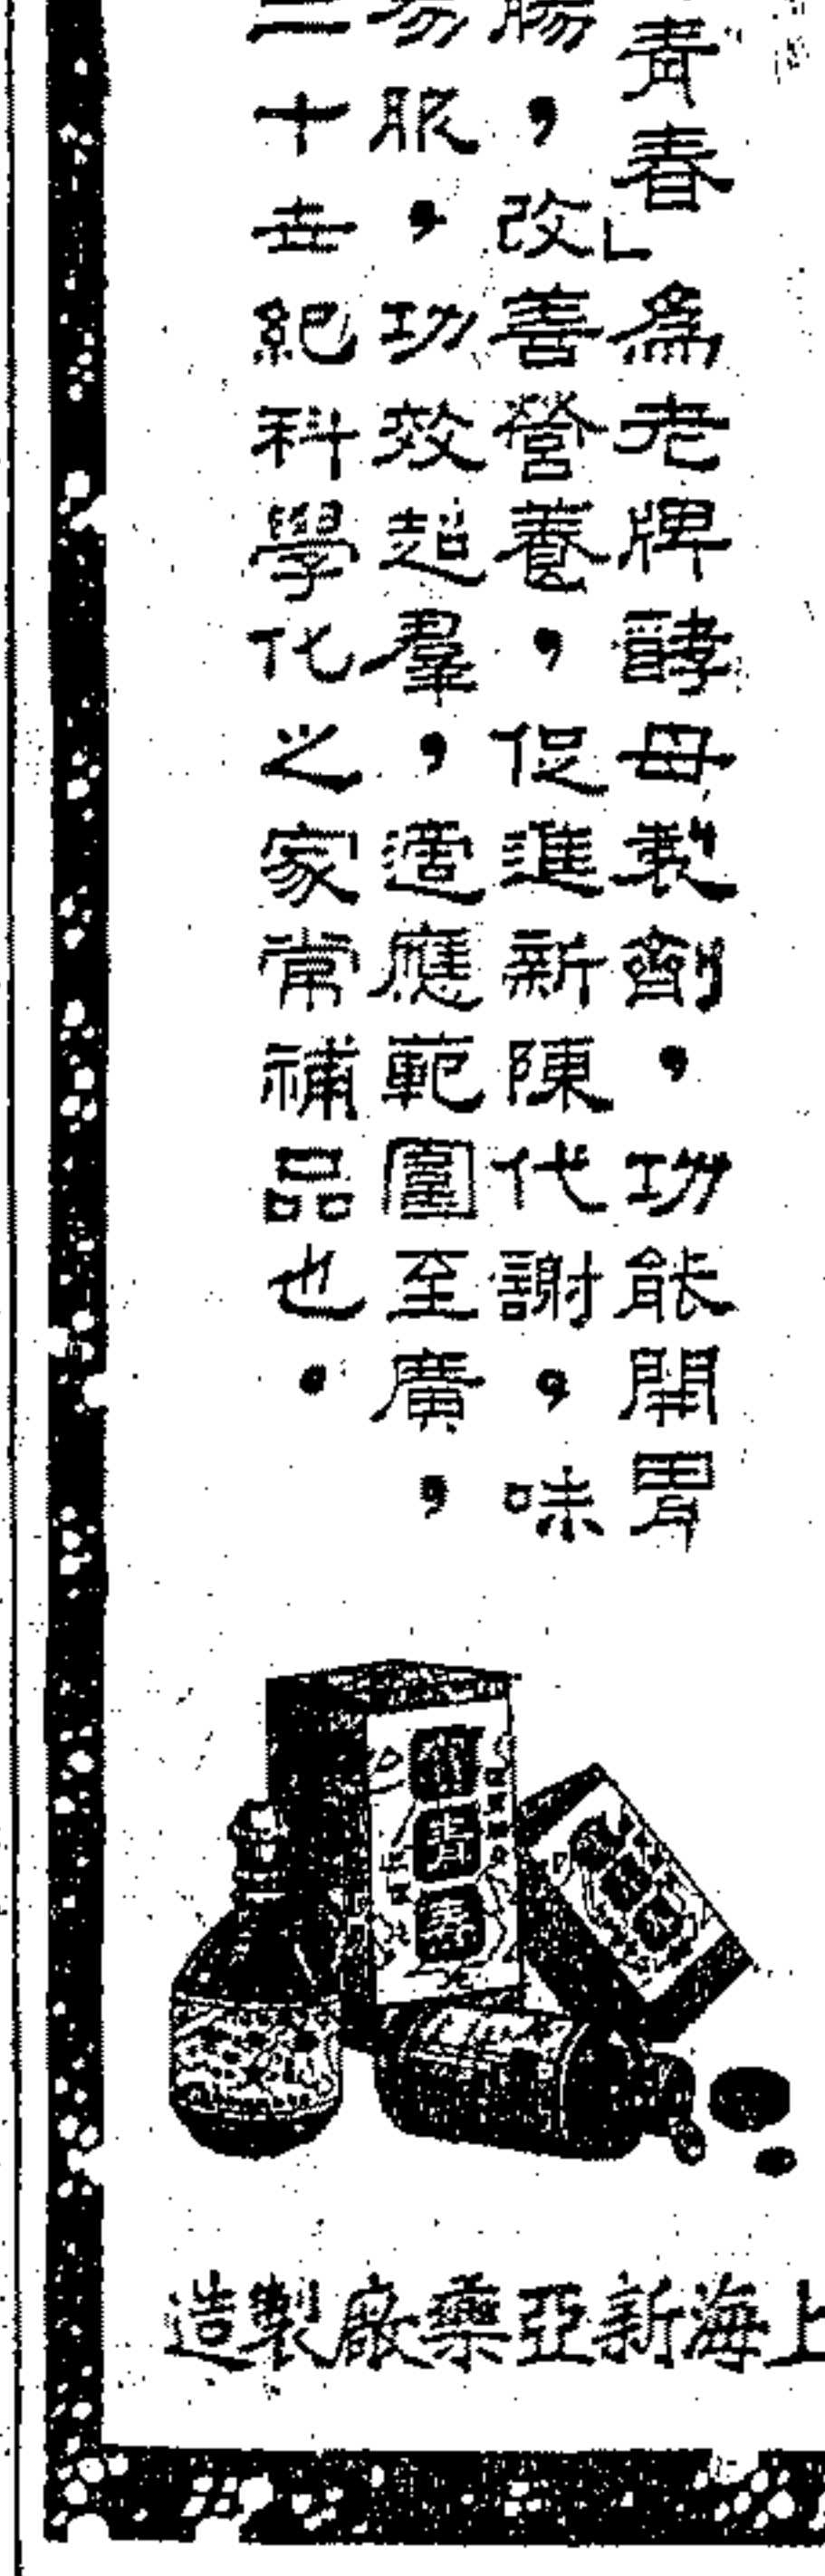 青春」爲老牌酵母製劑，功能開胃
腸，改善營養，促進新陳代謝。味
易服，功效超羣，適應範圍至廣，
二十世紀科學化之家常補品也。
上海新亞藥廠製造